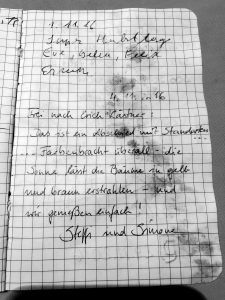 1.11.16
Eva, Helen, Felix
16
Frei nach Erich Kästner:
Das ist ein Abschied mit Standarten
... Farbenpracht überall - die
Sonne lässt die Bäume in gelb
und braun erstrahlen - und
wir genießen einfach!
Steffi und Simone